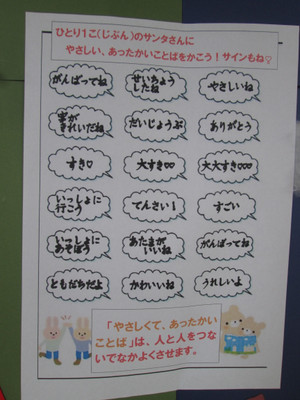 ひとり1こ(じぶん)のサンタさんに
やさしい、あったかいことばをかこう!サインもね♡
がんばってね
せいちょう
したね
やさしいね
字が
きれいだね
だいじょうぶ
ありがとう
すき♡
大すき♡♡
大大すき♡♡♡
いっしょに
行こう
てんさい!
すごい
いっしょに
あそぼう
あたまが
いいね
がんばってね
ともだちだよ
かわいいね
うれしいよ
「やさしくて、あったかい
ことば」は、人と人をつな
いでなかよくさせます。